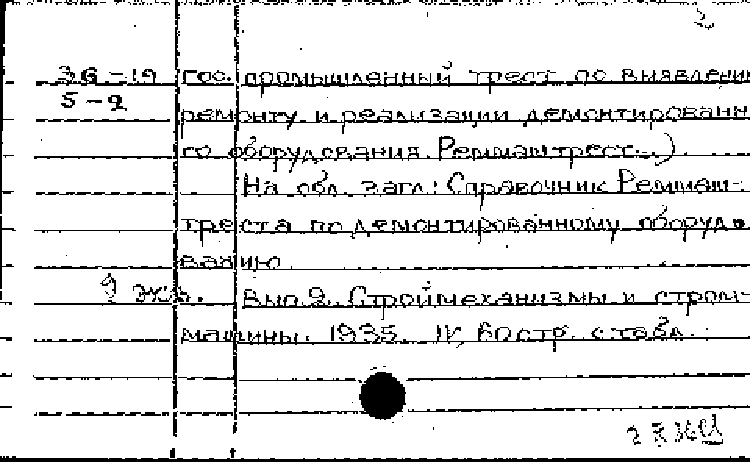 2
36-19 гос. промышленный трест по выявлени
5-2 ремонту и реализации демонтированн
го оборудования. Реммаштрест...)
На обл. загл.: Справочник Реммаш-
треста по демонтированному оборудо
ванию
9 экз. Вып. 2. Строймеханизмы и стром-
машины. 1935. IV, 80 стр. с табл.